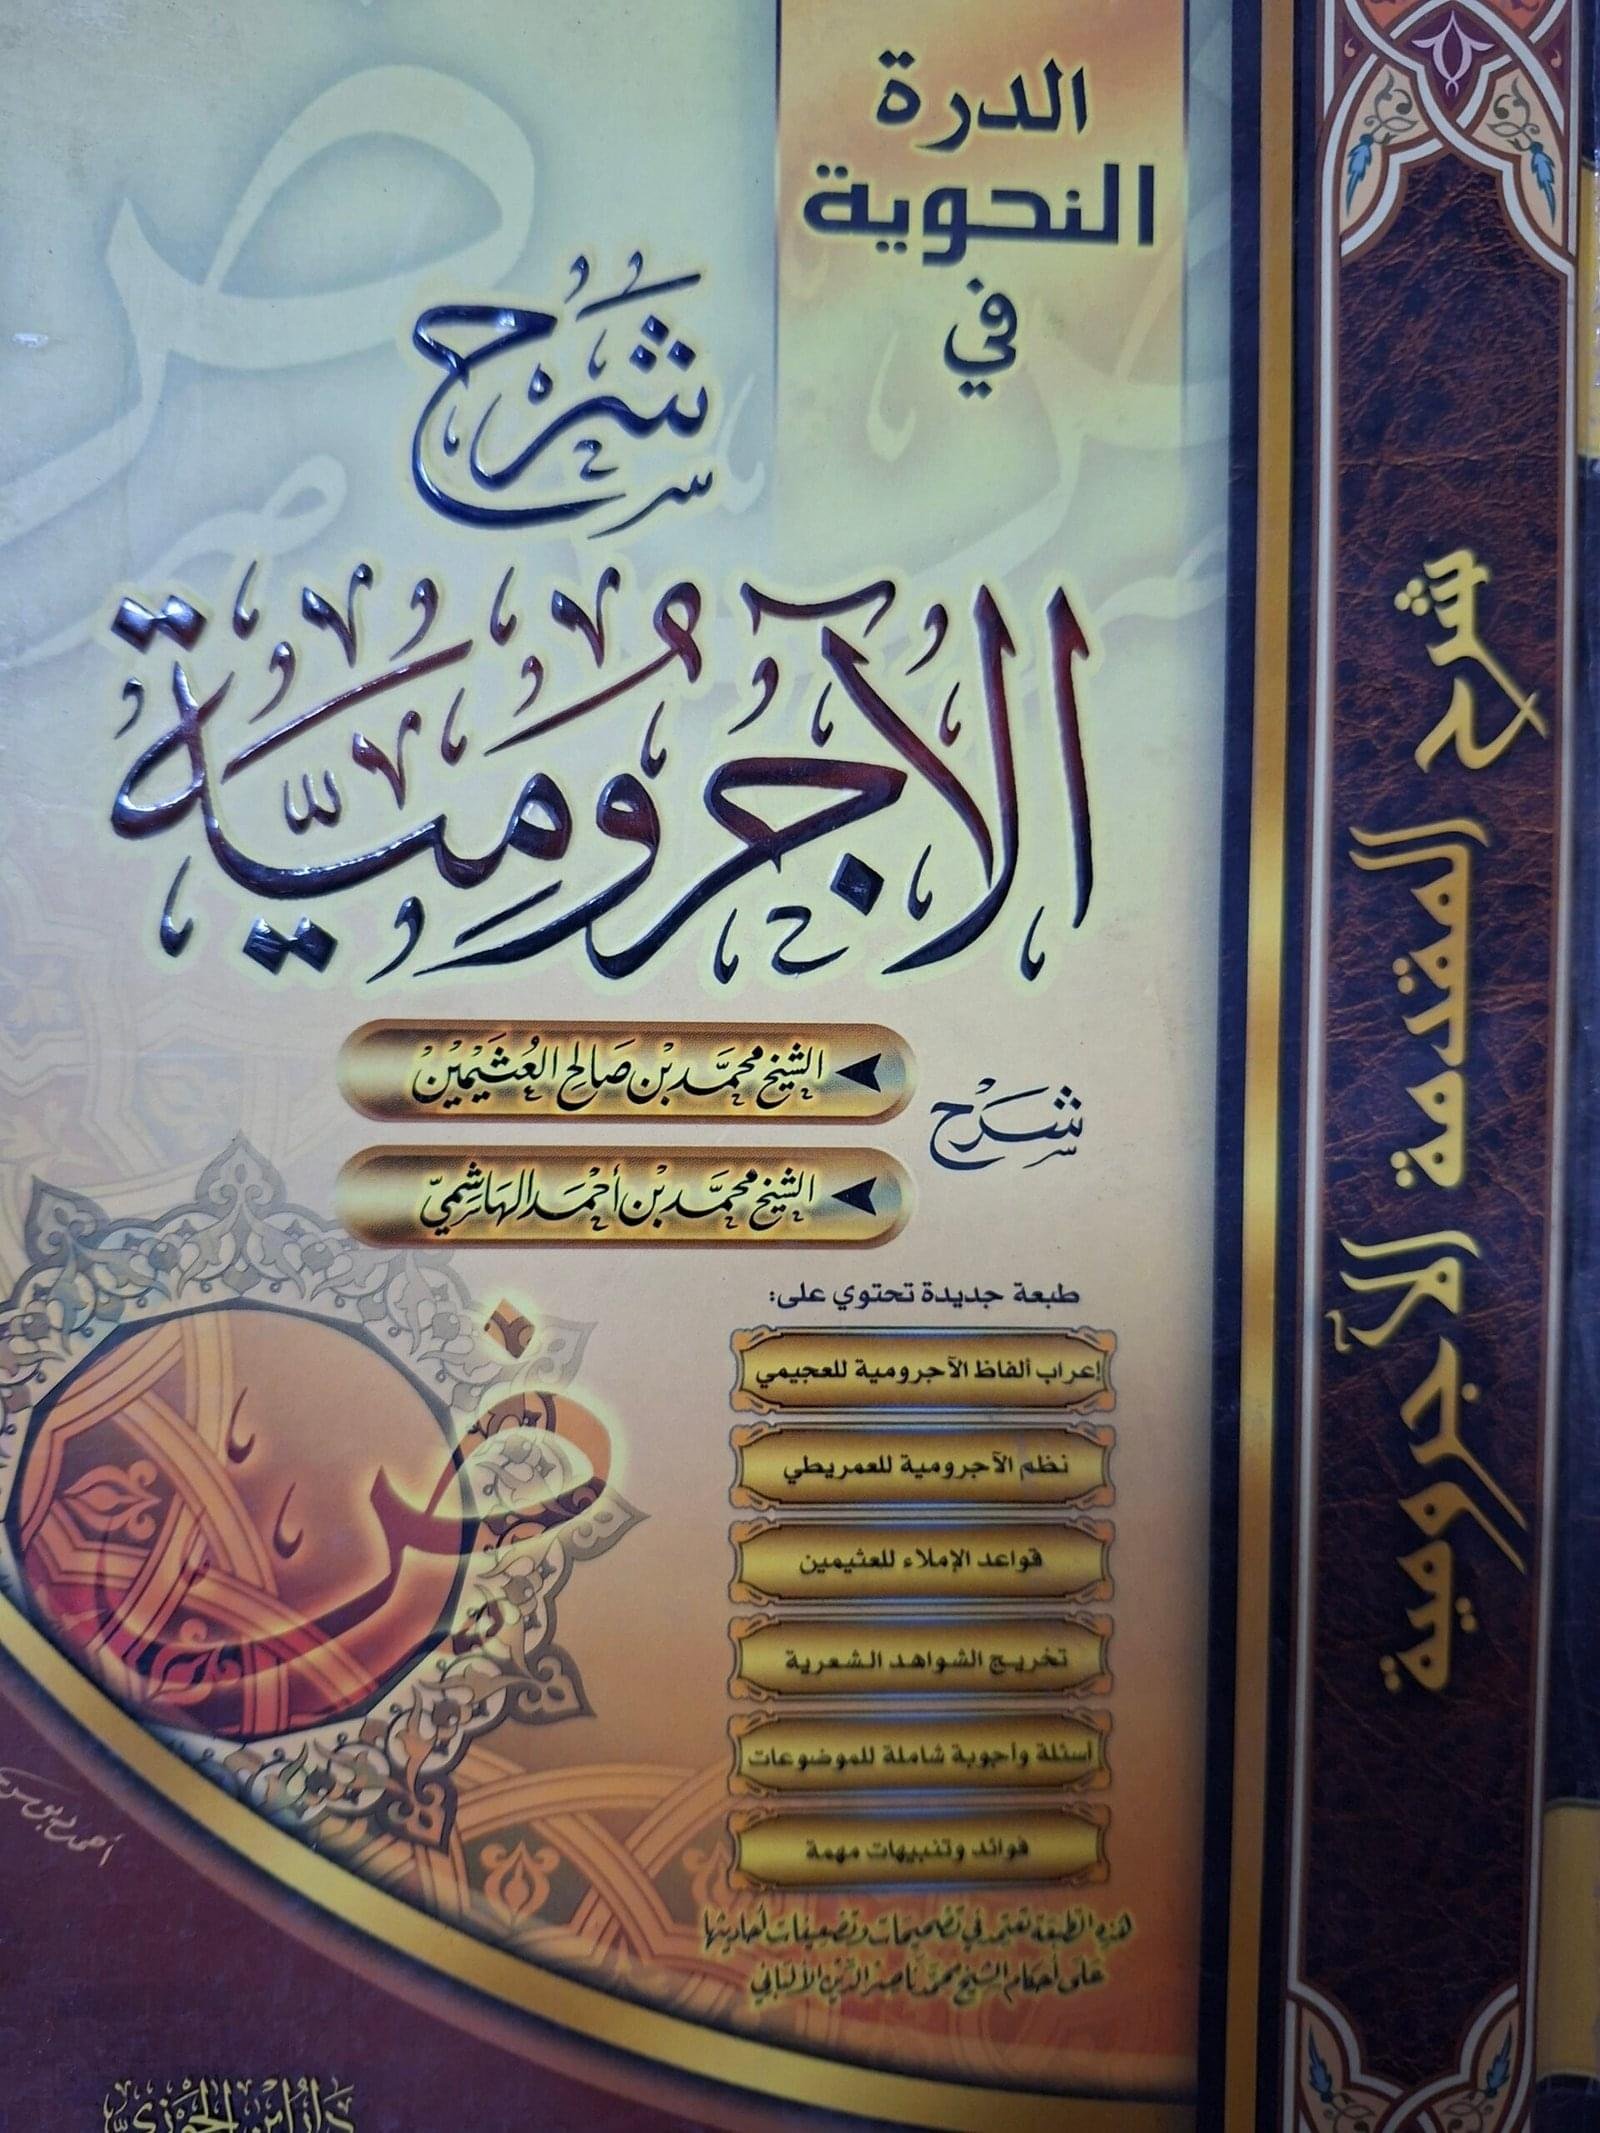 الدرة
النحوية
في
شَرْح
الآجُرُّومِيَّة
شَرْح
الشيخ محمَّد بْن صَالح العُثَيْمِيْن
الشيخ محمَّد بْن أحْمَد الهَاشِميّ
طبعة جديدة تحتوي على:
إعراب ألفاظ الآجرومية للعجيمي
نظم الآجرومية للعمريطي
قواعد الإملاء للعثيمين
تخريج الشواهد الشعرية
أسئلة وأجوبة شاملة للموضوعات
فوائد وتنبيهات مهمة
هذه الطبعة تعتمد في تصحيحات وتضعيفات أحاديثها
على أحكام الشيخ محمّد ناصر الدّين الألباني
دار ابن الجوزي
شرح المقدمة الآجرومية